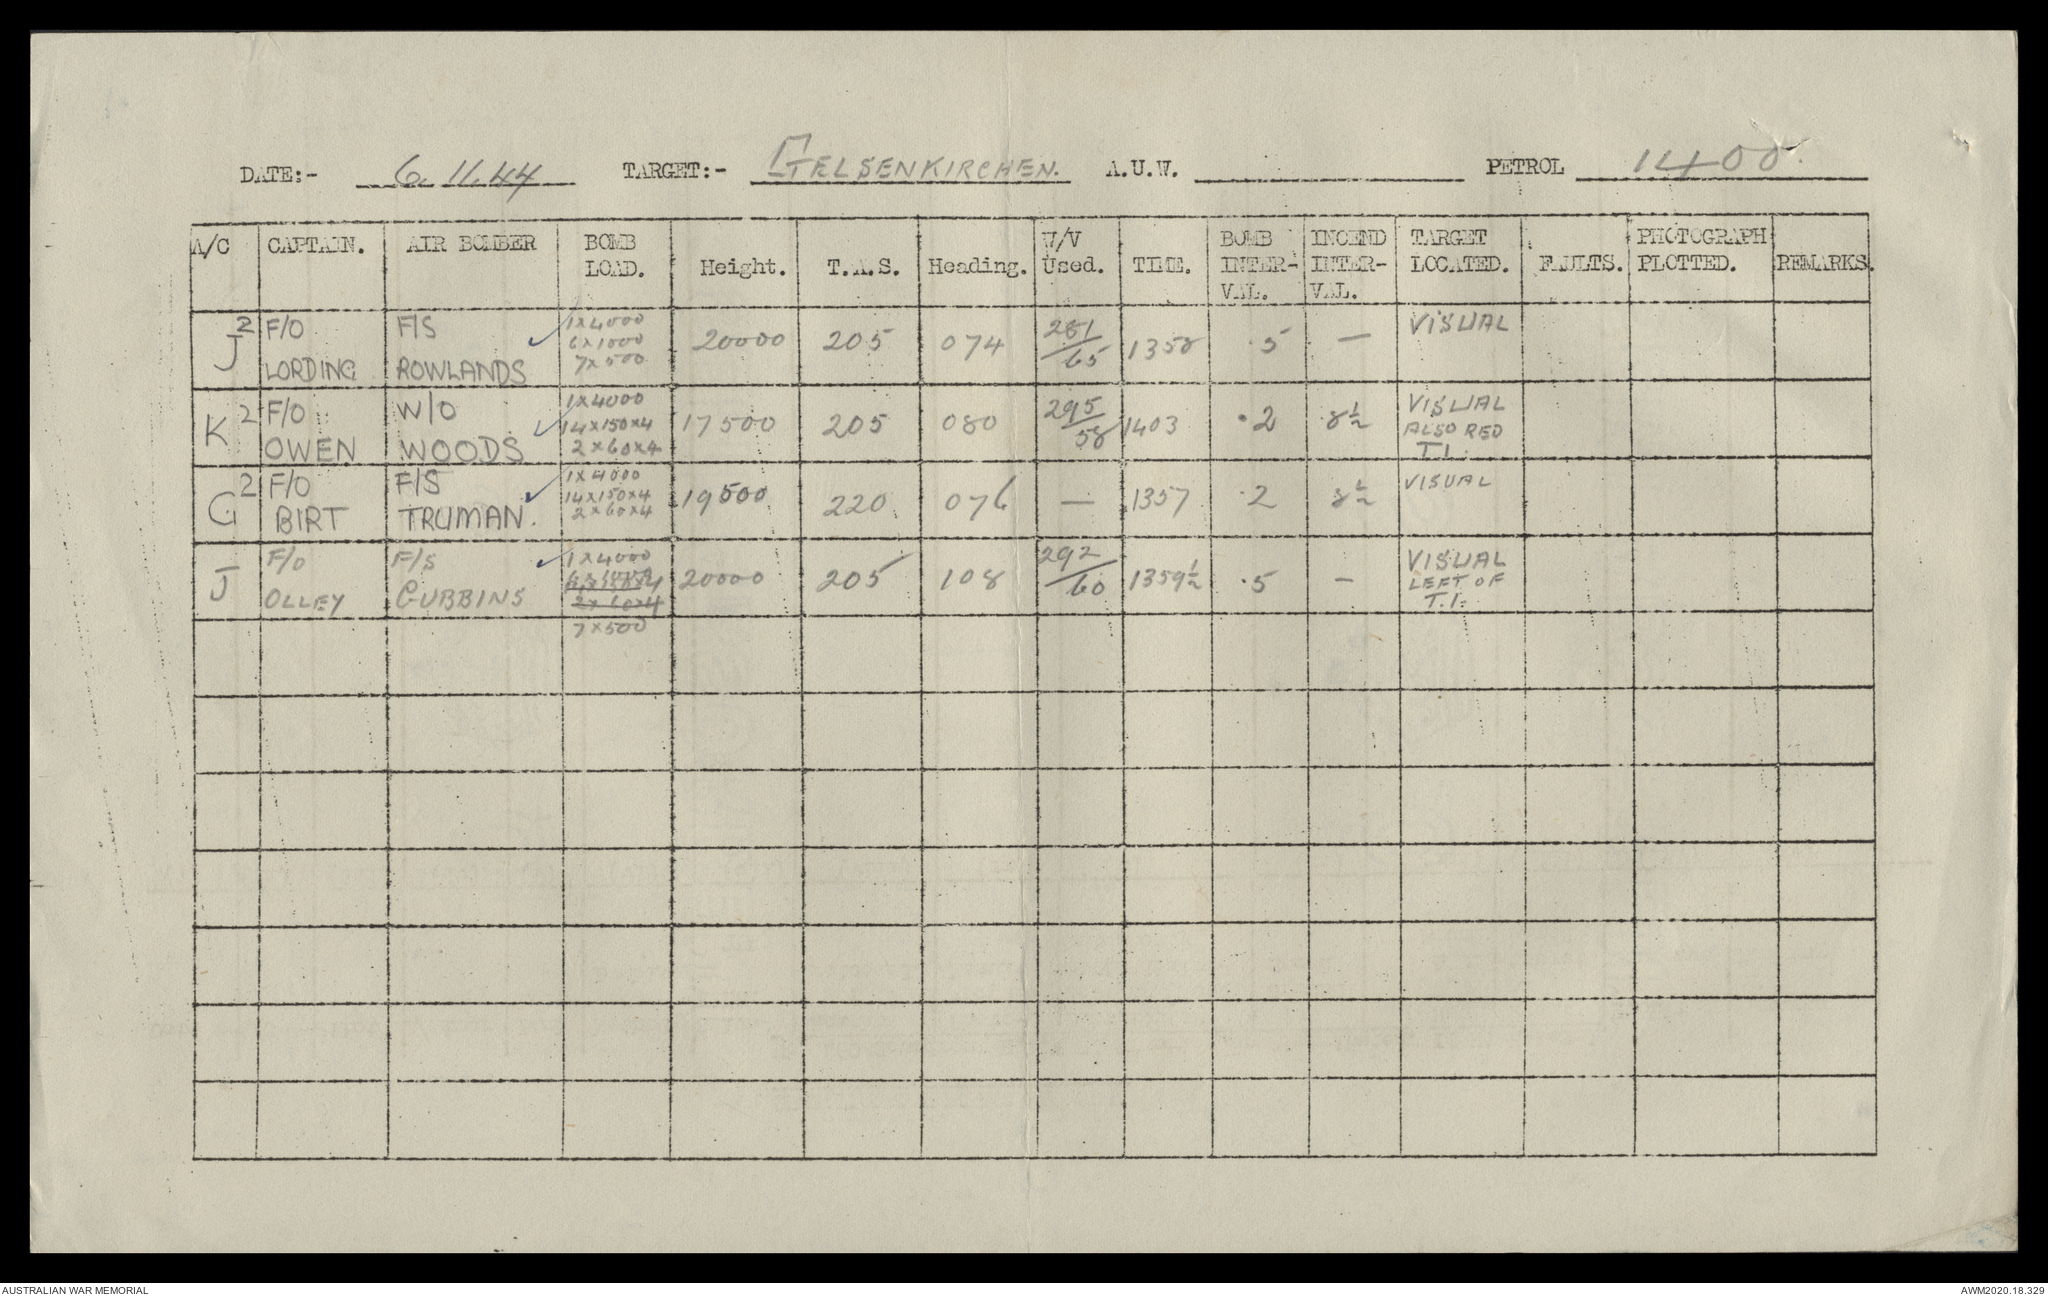 DATE:- 6.11.44 TARGET:- GELSENKIRCHEN. A.U.W. PETROL 1400.
A/C CAPTAIN. AIR BOMBER BOMB LOAD. Height. T.A.S. Heading. W/V Used. TIME. BOMB INTER-VAL. INCEND INTER-VAL. TARGET LOCATED. FAULTS. PHOTOGRAPH PLOTTED. REMARKS.
J² F/O LORDING F/S ROWLANDS ✓ 1x4000 6x1000 7x500 20000 205 074 281/65 1358 .5 — VISUAL
K² F/O OWEN W/O WOODS ✓ 1x4000 14x150x4 2x60x4 17500 205 080 295/58 1403 .2 8½ VISUAL ALSO RED T.I.
G² F/O BIRT F/S TRUMAN. ✓ 1x4000 14x150x4 2x60x4 19500 220 076 — 1357 .2 8½ VISUAL
J F/O OLLEY F/S GUBBINS ✓ 1x4000 6x1000 2x60x4 7x500 20000 205 108 292/60 1359½ .5 — VISUAL LEFT OF T.I.
AUSTRALIAN WAR MEMORIAL
AWM2020.18.329